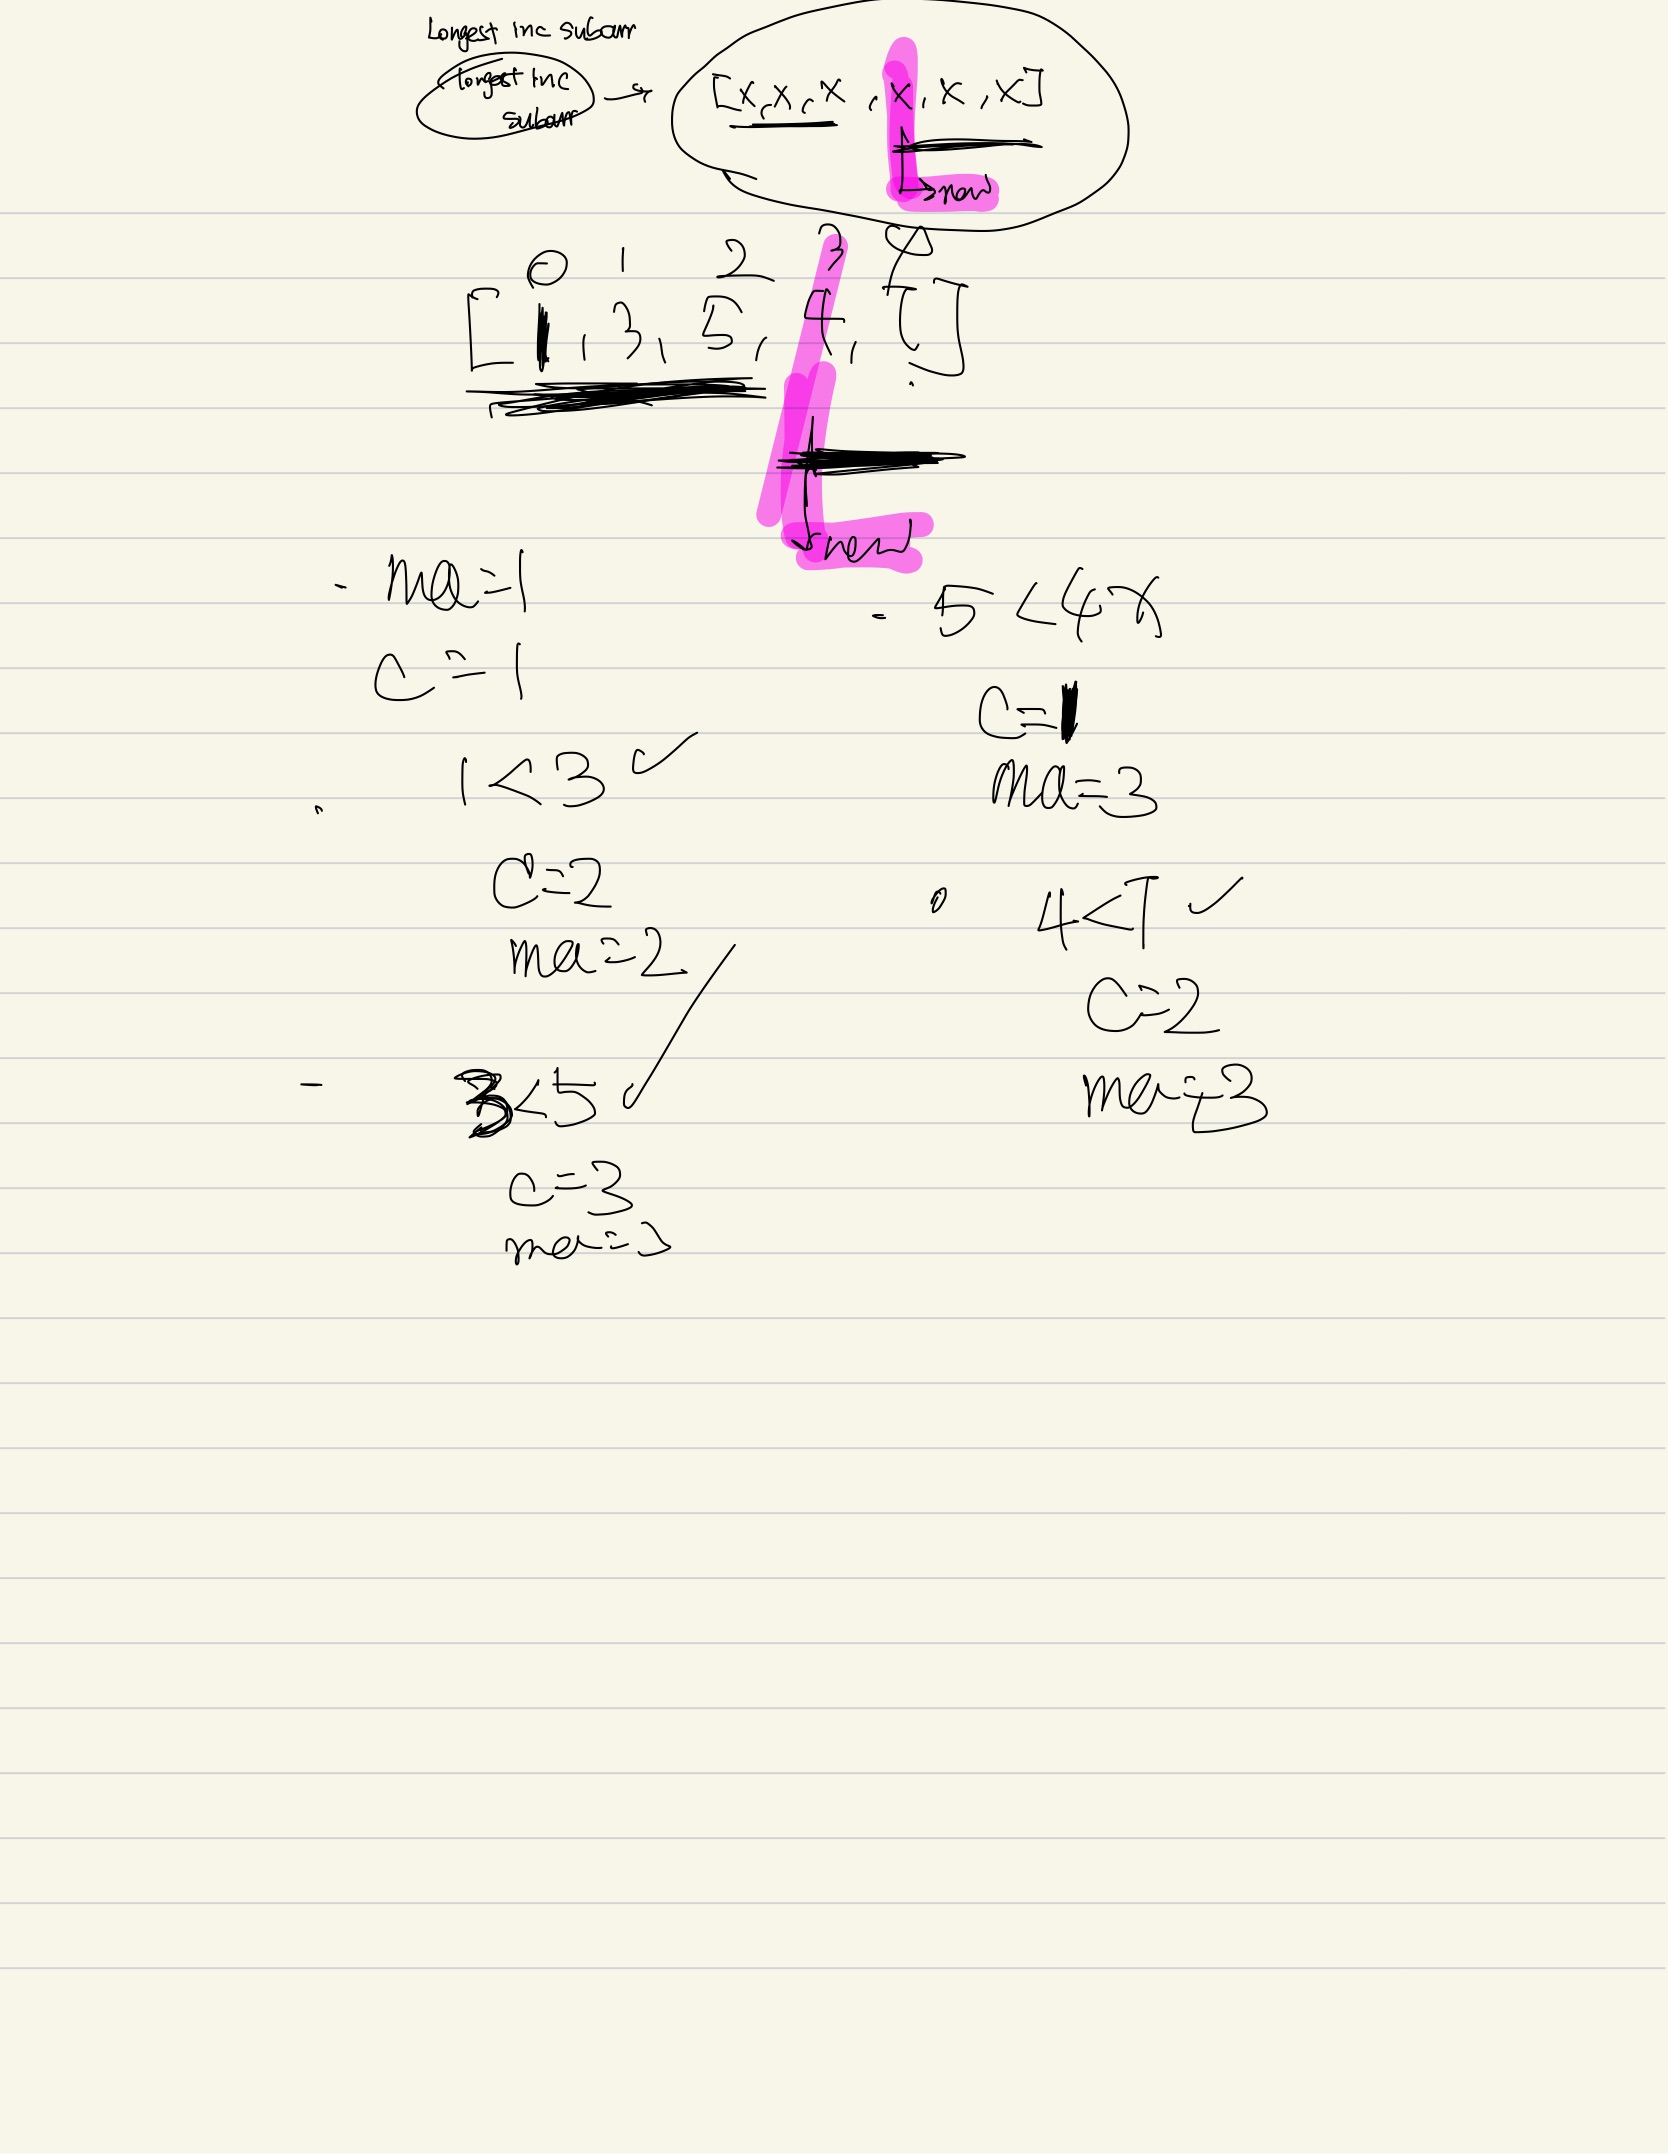 Longest inc subarr
longest inc
subarr
[x,x,x,x,x,x]
new
0 1 2 3
[1,3,5,4,7]
new
- ma=1
c=1
1<3 ✓
c=2
ma=2
- 3<5 ✓
c=3
ma=3
- 5<4 x
c=1
ma=3
4<7 ✓
c=2
ma=3